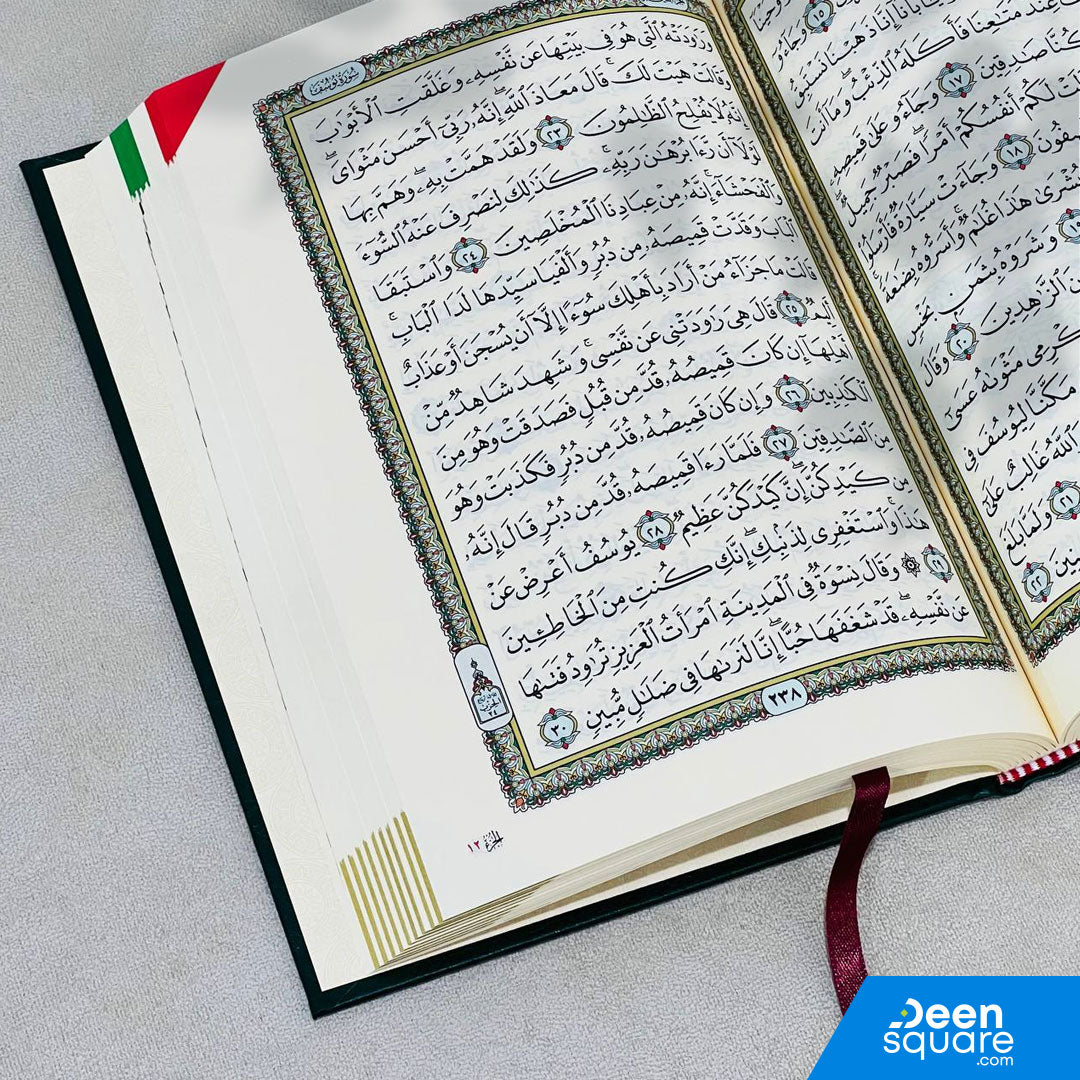 ١٥ وَجَآءُو
إِنَّا ذَهَبْنَا نَسْتَبِقُ
عِندَ مَتَـٰعِنَا فَأَكَلَهُ ٱلذِّئْبُ وَمَآ أَنتَ
كُنَّا صَـٰدِقِينَ ١٧ وَجَآءُو عَلَىٰ قَمِيصِهِۦ
لَكُمْ أَنفُسُكُمْ أَمْرًا فَصَبْرٌ جَمِيلٌ
١٨ وَجَآءَتْ سَيَّارَةٌ فَأَرْسَلُوا۟
هَـٰذَا غُلَـٰمٌ وَأَسَرُّوهُ بِضَـٰعَةً
١٩ وَشَرَوْهُ بِثَمَنٍۭ بَخْسٍ
ٱلزَّٰهِدِينَ ٢٠ وَقَالَ
مَثْوَىٰهُ عَسَىٰٓ
مَكَّنَّا لِيُوسُفَ فِى
ٱللَّهُ غَالِبٌ عَلَىٰٓ
٢١ وَلَمَّا بَلَغَ
٢٢
سُورَةُ يُوسُفَ
وَرَٰوَدَتْهُ ٱلَّتِى هُوَ فِى بَيْتِهَا عَن نَّفْسِهِۦ وَغَلَّقَتِ ٱلْأَبْوَٰبَ
وَقَالَتْ هَيْتَ لَكَ ۚ قَالَ مَعَاذَ ٱللَّهِ ۖ إِنَّهُۥ رَبِّىٓ أَحْسَنَ مَثْوَاىَ ۖ
إِنَّهُۥ لَا يُفْلِحُ ٱلظَّـٰلِمُونَ ٢٣ وَلَقَدْ هَمَّتْ بِهِۦ ۖ وَهَمَّ بِهَا
لَوْلَآ أَن رَّءَا بُرْهَـٰنَ رَبِّهِۦ ۚ كَذَٰلِكَ لِنَصْرِفَ عَنْهُ ٱلسُّوٓءَ
وَٱلْفَحْشَآءَ ۚ إِنَّهُۥ مِنْ عِبَادِنَا ٱلْمُخْلَصِينَ ٢٤ وَٱسْتَبَقَا
ٱلْبَابَ وَقَدَّتْ قَمِيصَهُۥ مِن دُبُرٍ وَأَلْفَيَا سَيِّدَهَا لَدَا ٱلْبَابِ ۚ
قَالَتْ مَا جَزَآءُ مَنْ أَرَادَ بِأَهْلِكَ سُوٓءًا إِلَّآ أَن يُسْجَنَ أَوْ عَذَابٌ
أَلِيمٌ ٢٥ قَالَ هِىَ رَٰوَدَتْنِى عَن نَّفْسِى ۚ وَشَهِدَ شَاهِدٌ مِّنْ
أَهْلِهَآ إِن كَانَ قَمِيصُهُۥ قُدَّ مِن قُبُلٍ فَصَدَقَتْ وَهُوَ مِنَ
ٱلْكَـٰذِبِينَ ٢٦ وَإِن كَانَ قَمِيصُهُۥ قُدَّ مِن دُبُرٍ فَكَذَبَتْ وَهُوَ
مِنَ ٱلصَّـٰدِقِينَ ٢٧ فَلَمَّا رَءَا قَمِيصَهُۥ قُدَّ مِن دُبُرٍ قَالَ إِنَّهُۥ
مِن كَيْدِكُنَّ ۖ إِنَّ كَيْدَكُنَّ عَظِيمٌ ٢٨ يُوسُفُ أَعْرِضْ عَنْ
هَـٰذَا ۚ وَٱسْتَغْفِرِى لِذَنۢبِكِ ۖ إِنَّكِ كُنتِ مِنَ ٱلْخَاطِـِٔينَ
٢٩ ۞ وَقَالَ نِسْوَةٌ فِى ٱلْمَدِينَةِ ٱمْرَأَتُ ٱلْعَزِيزِ تُرَٰوِدُ فَتَىٰهَا
عَن نَّفْسِهِۦ ۖ قَدْ شَغَفَهَا حُبًّا ۖ إِنَّا لَنَرَىٰهَا فِى ضَلَـٰلٍ مُّبِينٍ ٣٠
٢٣٨
الحزب
٢٤
الجزء ١٢
Deen
square
.com